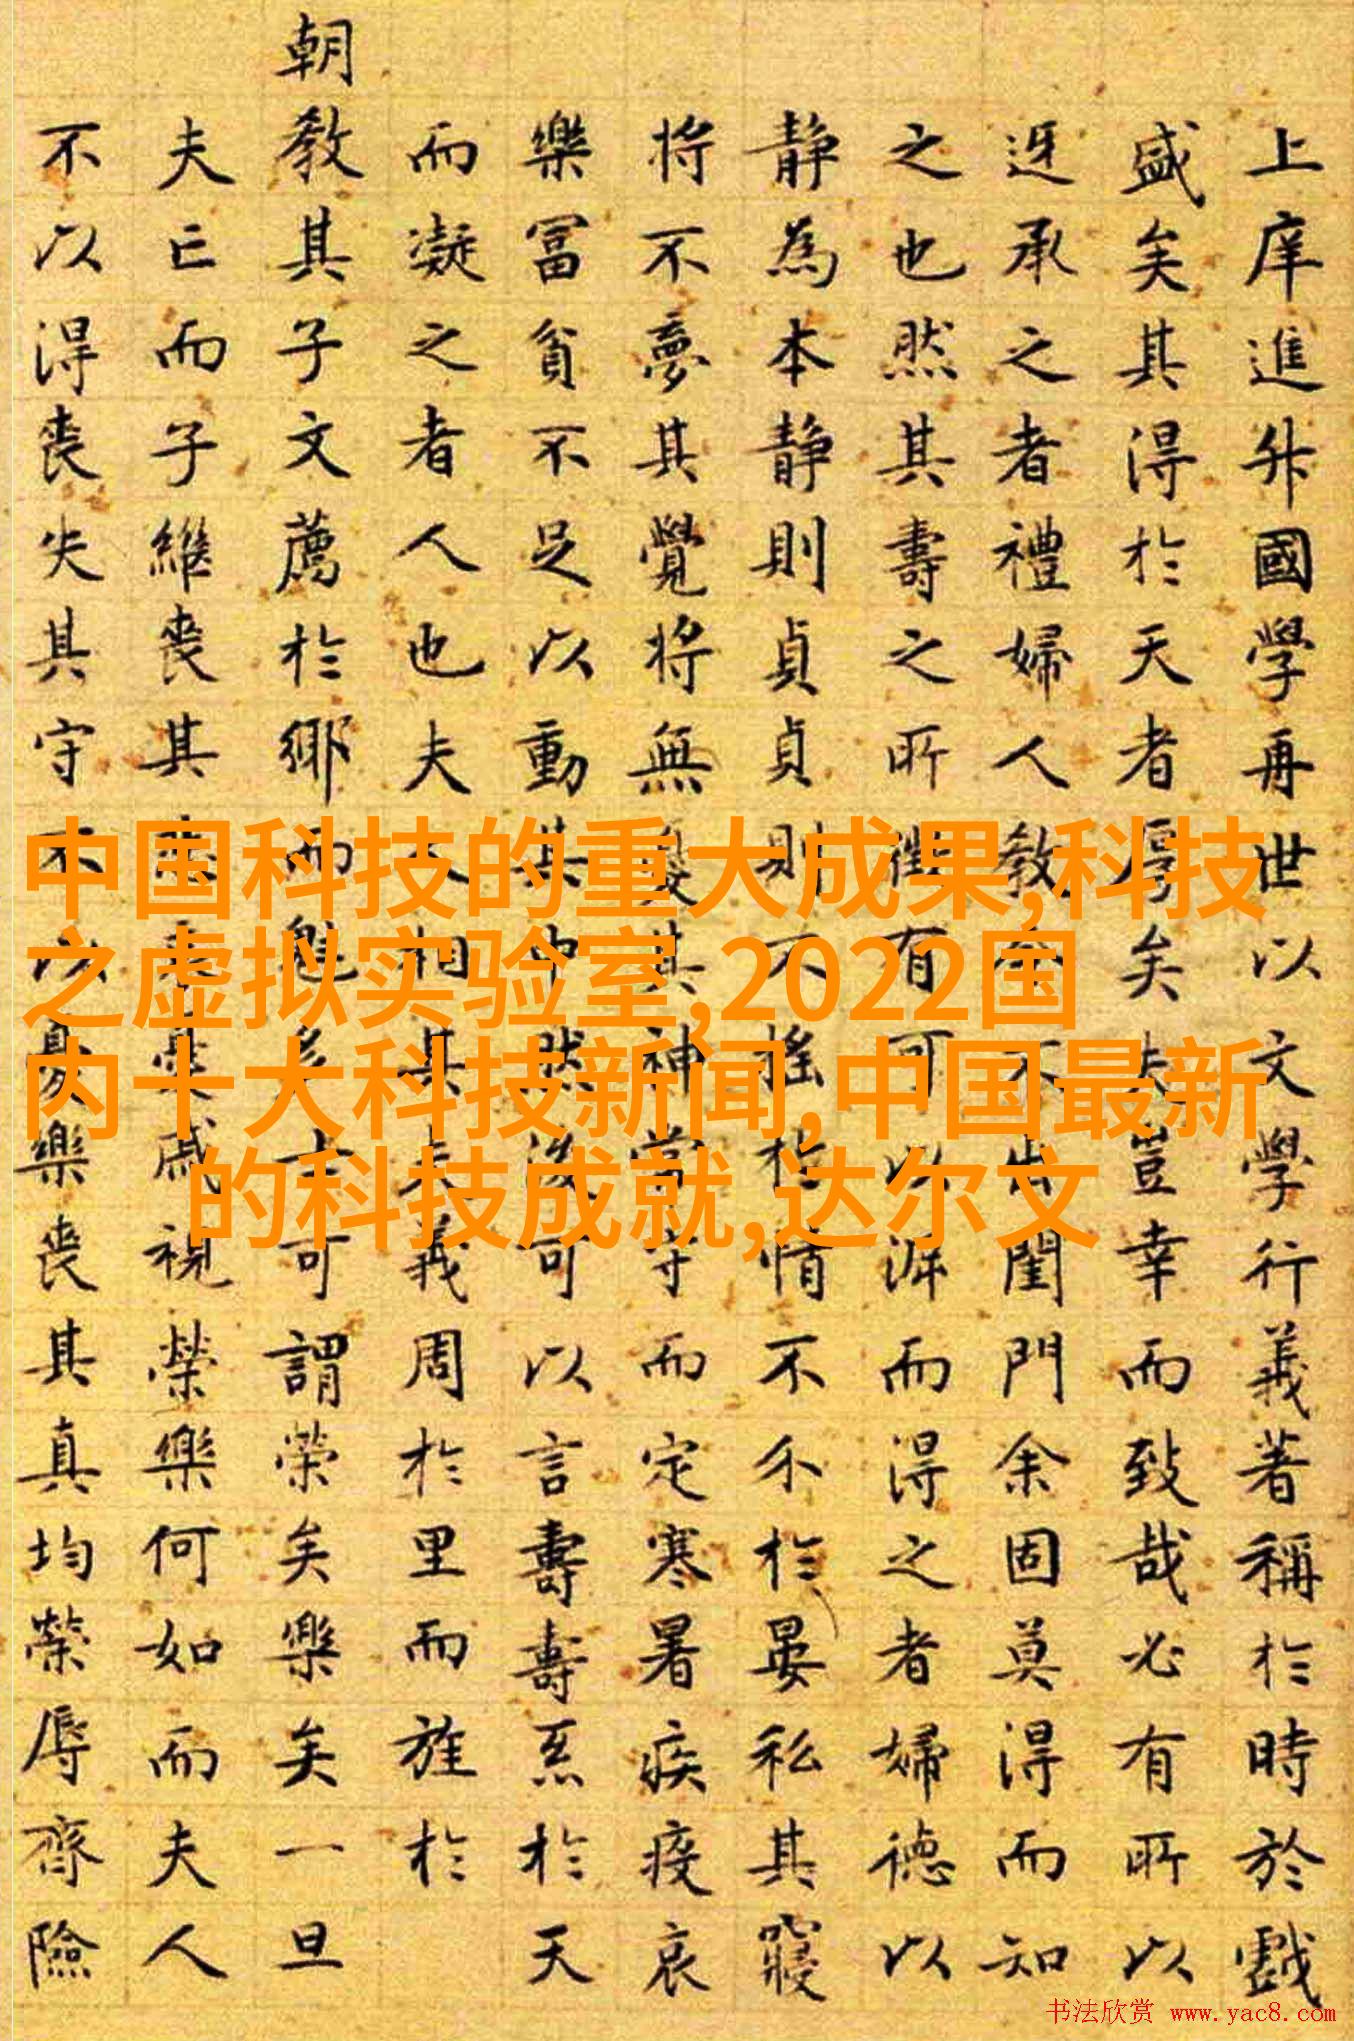 上庠進升國學再世以文學行義著稱於時於戲
盛矣其得於天者厚矣夫豈幸而致哉必有所以
迓承之者禮婦人教令不出閨門余固莫得而知
之也然其壽之所徵有可以涯而得之者婦德以
静為本静則貞貞則不搖於情不介於晏私其寢
將不夢其覺將無憂其神常守而定寒暑疾疫哀
樂冨貧不足以動其中然後可以言壽壽系於天
而凝之者人也夫人相其夫義周於里而旌於
朝教其子文薦於鄉而魁多士可謂荣矣樂矣一旦
夫亡而子繼喪其視榮樂何如而夫人
不以得喪失其守不以易樂喪其真均榮辱齊險
中国科技的重大成果,科技
之虚拟实验室,2022国
内十大科技新闻,中国最新
的科技成就,达尔文
书法欣赏 www.yac8.com